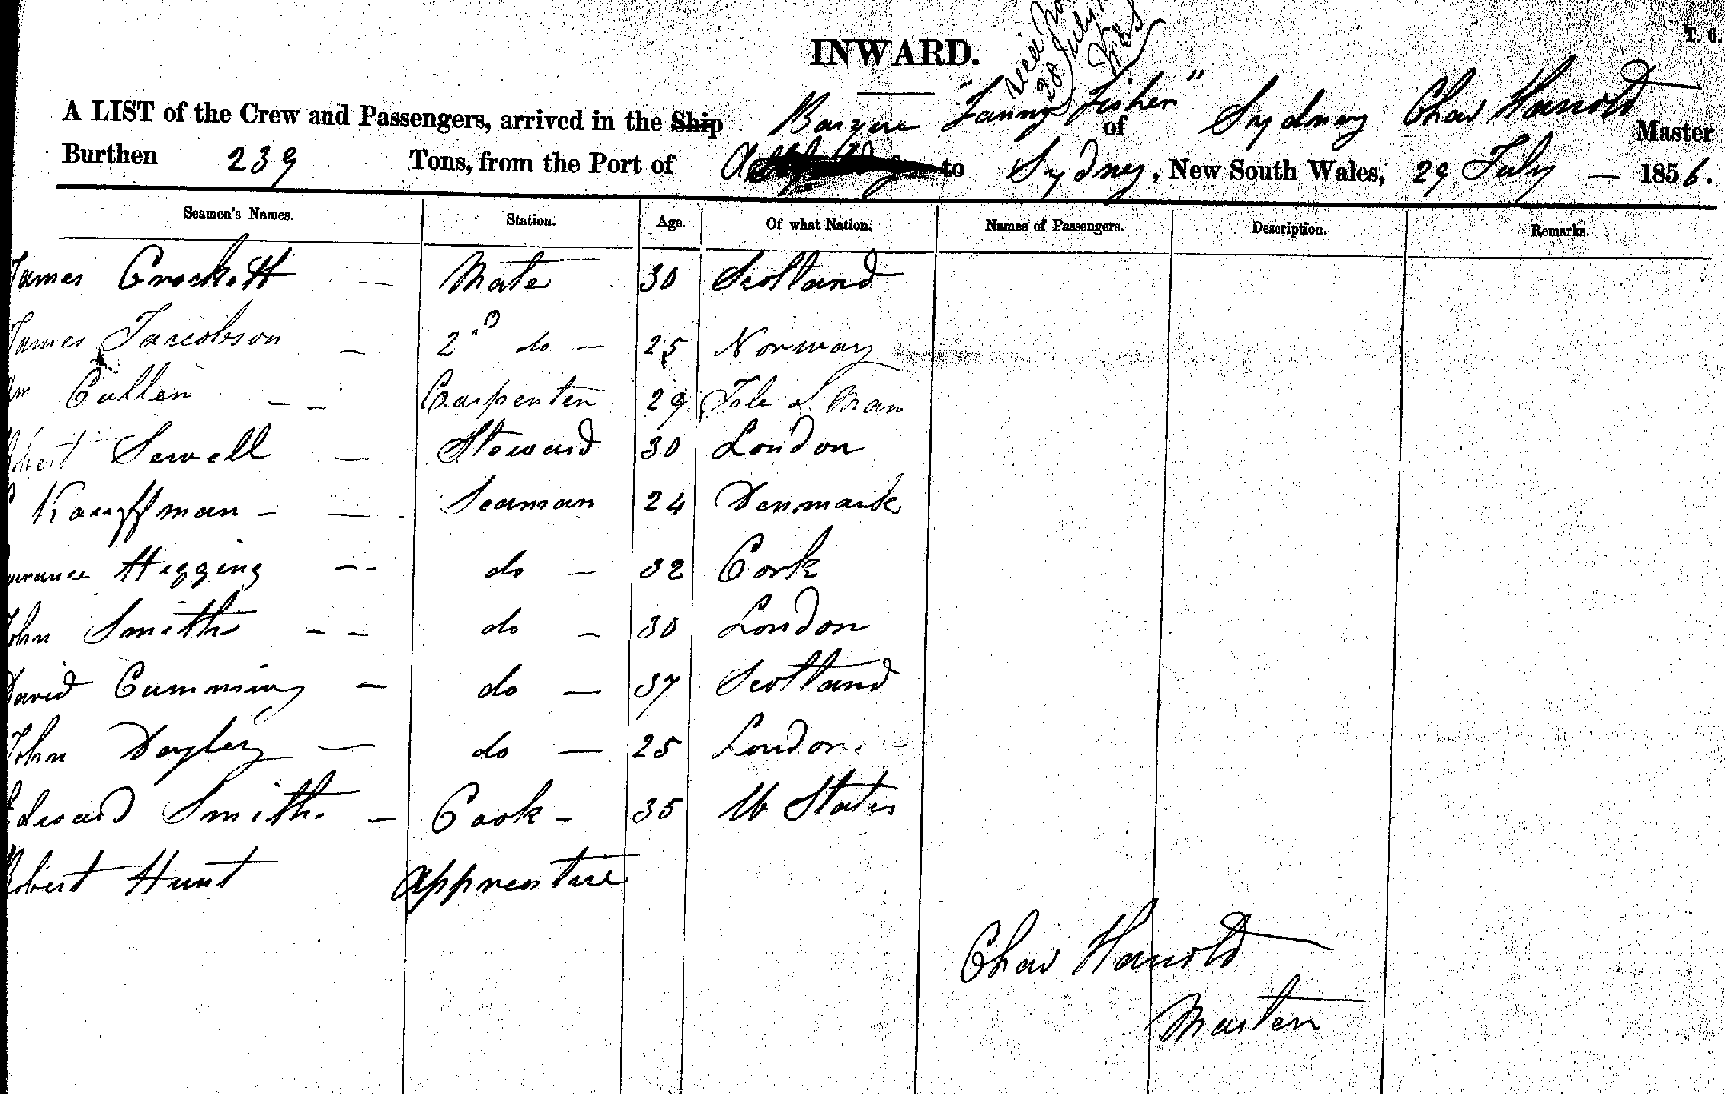 INWARD.
T. 6.
28 July
A LIST of the Crew and Passengers, arrived in the Ship Barque "Fanny Fisher" of Sydney Chas Harrold Master
Burthen 239 Tons, from the Port of to Sydney, New South Wales, 29 July — 1856.
Seamen's Names. Station. Age. Of what Nation. Names of Passengers. Description. Remarks
James Crockett — Mate 30 Scotland
James Jacobson — 2nd do — 25 Norway
Wm Cullen — — Carpenter 29 Isle of Man
Sewell — Steward 30 London
Kauffman — — Seaman 24 Denmark
Higgins — - do — 32 Cork
John Smith — — do — 30 London
David Cumming — do — 37 Scotland
John Dayley — do — 25 London
Edward Smith — Cook — 35 U States
Robert Hunt Apprentice
Chas Harrold
Master